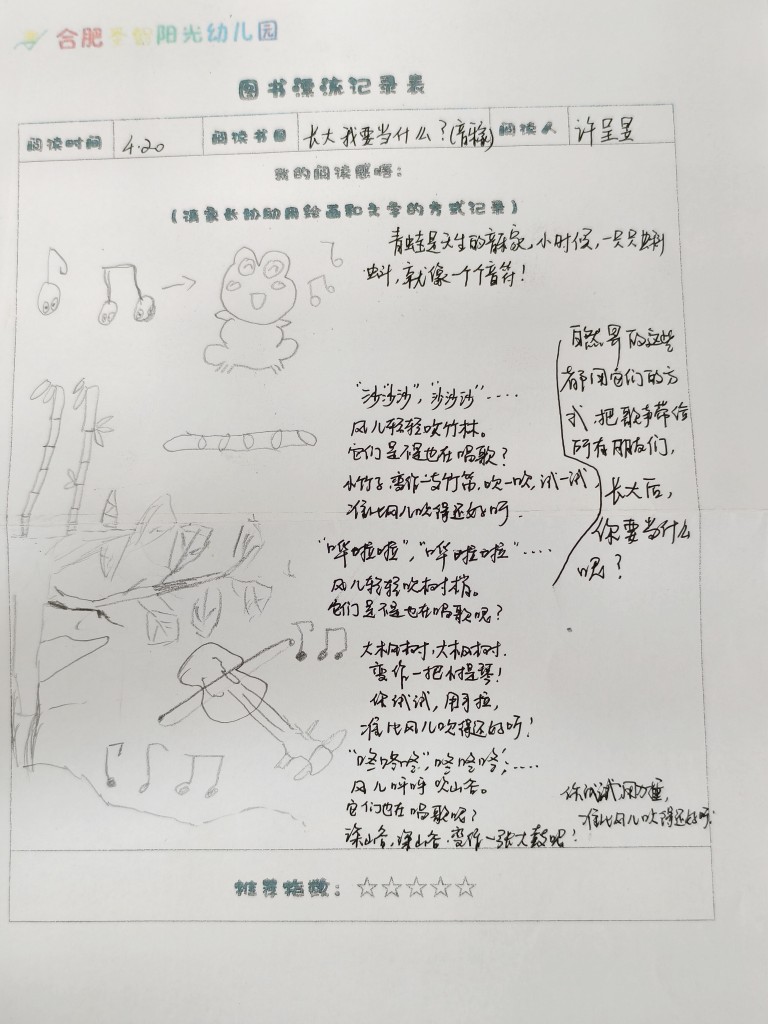 合肥 阳光幼儿园
图书漂流记录表
阅读时间 4.20 阅读书目 长大我要当什么？(音 ) 阅读人 许呈昱
我的阅读感悟：
（请家长协助用绘画和文字的方式记录）
青蛙是天生的音乐家，小时候，一只只蝌
蚪，就像一个个音符！
"沙沙沙"，"沙沙沙"····
风儿轻轻吹竹林。
它们是不是也在唱歌？
小竹子，变作一支竹笛，吹一吹，试一试，
准比风儿吹得还好听．
"哗啦啦"，"哗啦啦"····
风儿轻轻吹树梢。
它们是不是也在唱歌呢？
大枫树，大枫树．
变作一把小提琴！
你试试，用手拉，
准比风儿吹得还好听！
"咚咚咚"，咚咚咚，····
风儿呼呼吹山谷。
它们也在唱歌呢？
深山谷，深山谷．变作一张大鼓吧！
你试试 用力
准比风儿吹得还好听
自然界的这些
都用它们的方
式，把歌声带给
所有朋友们，
长大后，
你要当什么
呢？
推荐指数：☆☆☆☆☆